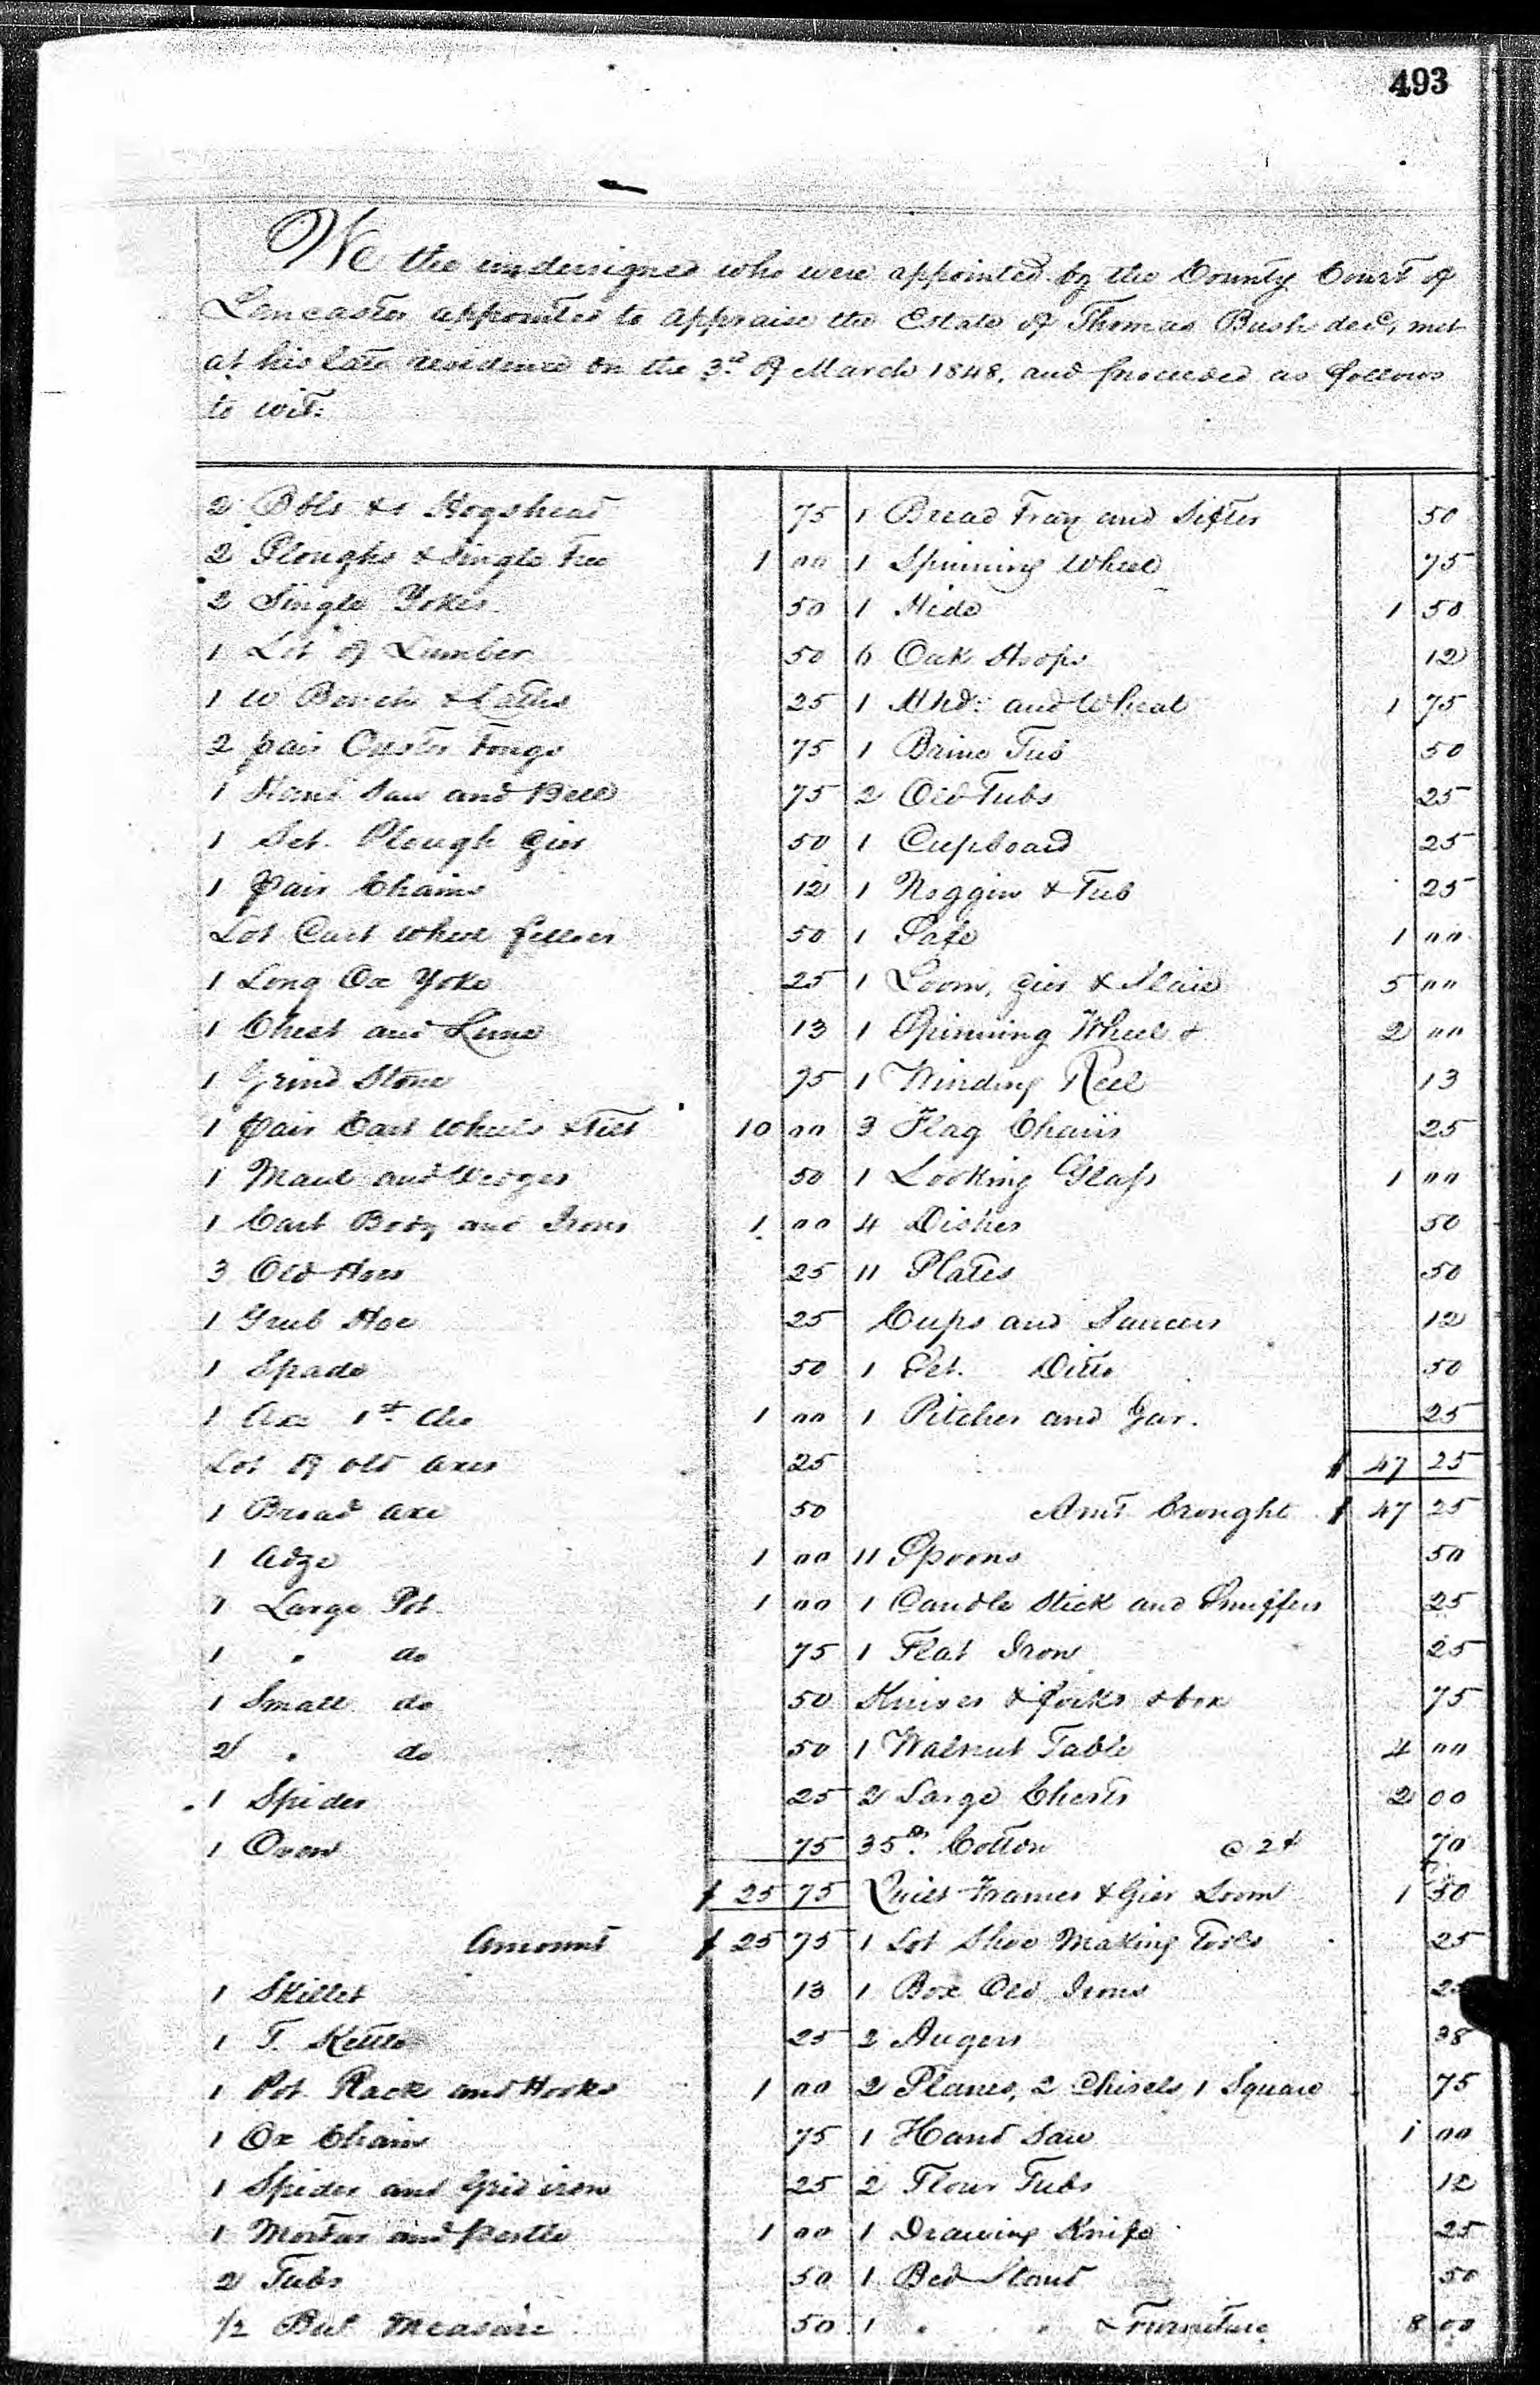 493
We the undersigned who were appointed by the County Court of
Lancaster appointed to appraise the Estate of Thomas Bush decd, met
at his late residence on the 3rd of March 1848, and proceeded as follows
to wit:
2 Bbls & 1 Hogshead 75
2 Ploughs & Single Tree 1 00
2 Single Yokes 50
1 Lot of Lumber 50
1 W Bench & Lathe 25
2 pair Oyster Tongs 75
1 Hand Saw and Bell 75
1 Set. Plough Gier 50
1 Pair Chains 12
Lot Cart Wheel felloes 50
1 Long Ox Yoke 25
1 Chest and Lime 13
1 Grind Stone 75
1 Pair Cart Wheels & 10 00
1 Maul and Wedges 50
1 Cart Body and Irons 1 00
3 Old Hoes 25
1 Grub Hoe 25
1 Spade 50
1 Axe 1st 1 00
Lot of old axes 25
1 Broad axe 50
1 Adze 1 00
1 Large Pot 1 00
1 " do 75
1 Small do 50
2 " do 50
1 Spider 25
1 Oven 75
$ 25 75
Amount $ 25 75
1 Skillet 13
1 T. Kettle 25
1 Pot Rack and Hooks 1 00
1 Ox Chain 75
1 Spider and Grid iron 25
1 Mortar and pestle 1 00
2 Tubs 50
1/2 Bul Measure 50
1 Bread Tray and Sifter 50
1 Spinning Wheel 75
1 Hide 1 50
6 Oak Hoops 12
1 Hhd: and Wheat 1 75
1 Brine Tub 50
2 Old Tubs 25
1 Cupboard 25
1 Noggin & Tub 25
1 Safe 1 00
1 Loom, Gier & Slaie 5 00
1 Spinning Wheel & 2 00
1 Winding Reel 13
3 Flag Chairs 25
1 Looking Glass 1 00
4 Dishes 50
11 Plates 50
Cups and Saucers 12
1 Set. Ditto 50
1 Pitcher and Jar. 25
$ 47 25
Amt brought $ 47 25
11 Spoons 50
1 Candle Stick and Snuffers 25
1 Flat Iron 25
Knives & forks & box 75
1 Walnut Table 4 00
2 Large Chests 2 00
35 lb. Cotton @ 2¢ 70
Quilt Frames & Gier Loom 1 50
1 Lot Shoe Making Tools 25
1 Box Old Irons
2 Augers 38
2 Planes, 2 Chisels, 1 Square 75
1 Hand Saw 1 00
2 Flour Tubs 12
1 Drawing Knife 25
1 Bed Stead 50
1 " " & Furniture 8 00